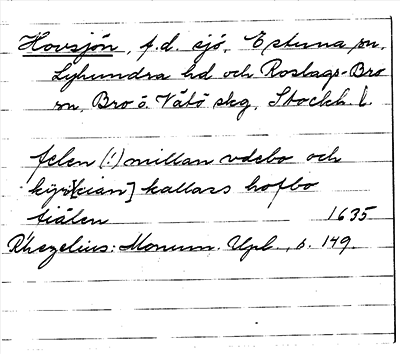 Hovsjön, f.d. sjö, Estuna sn,
Lyhundra hd och Roslags-Bro
sn, Bro o. Vätö skg, Stockh. l.
felen (!) millan vdebo och
kyr[kian] kallass hofbo
siälen 1635
Rhezelius: Monum. Upl., s. 149.